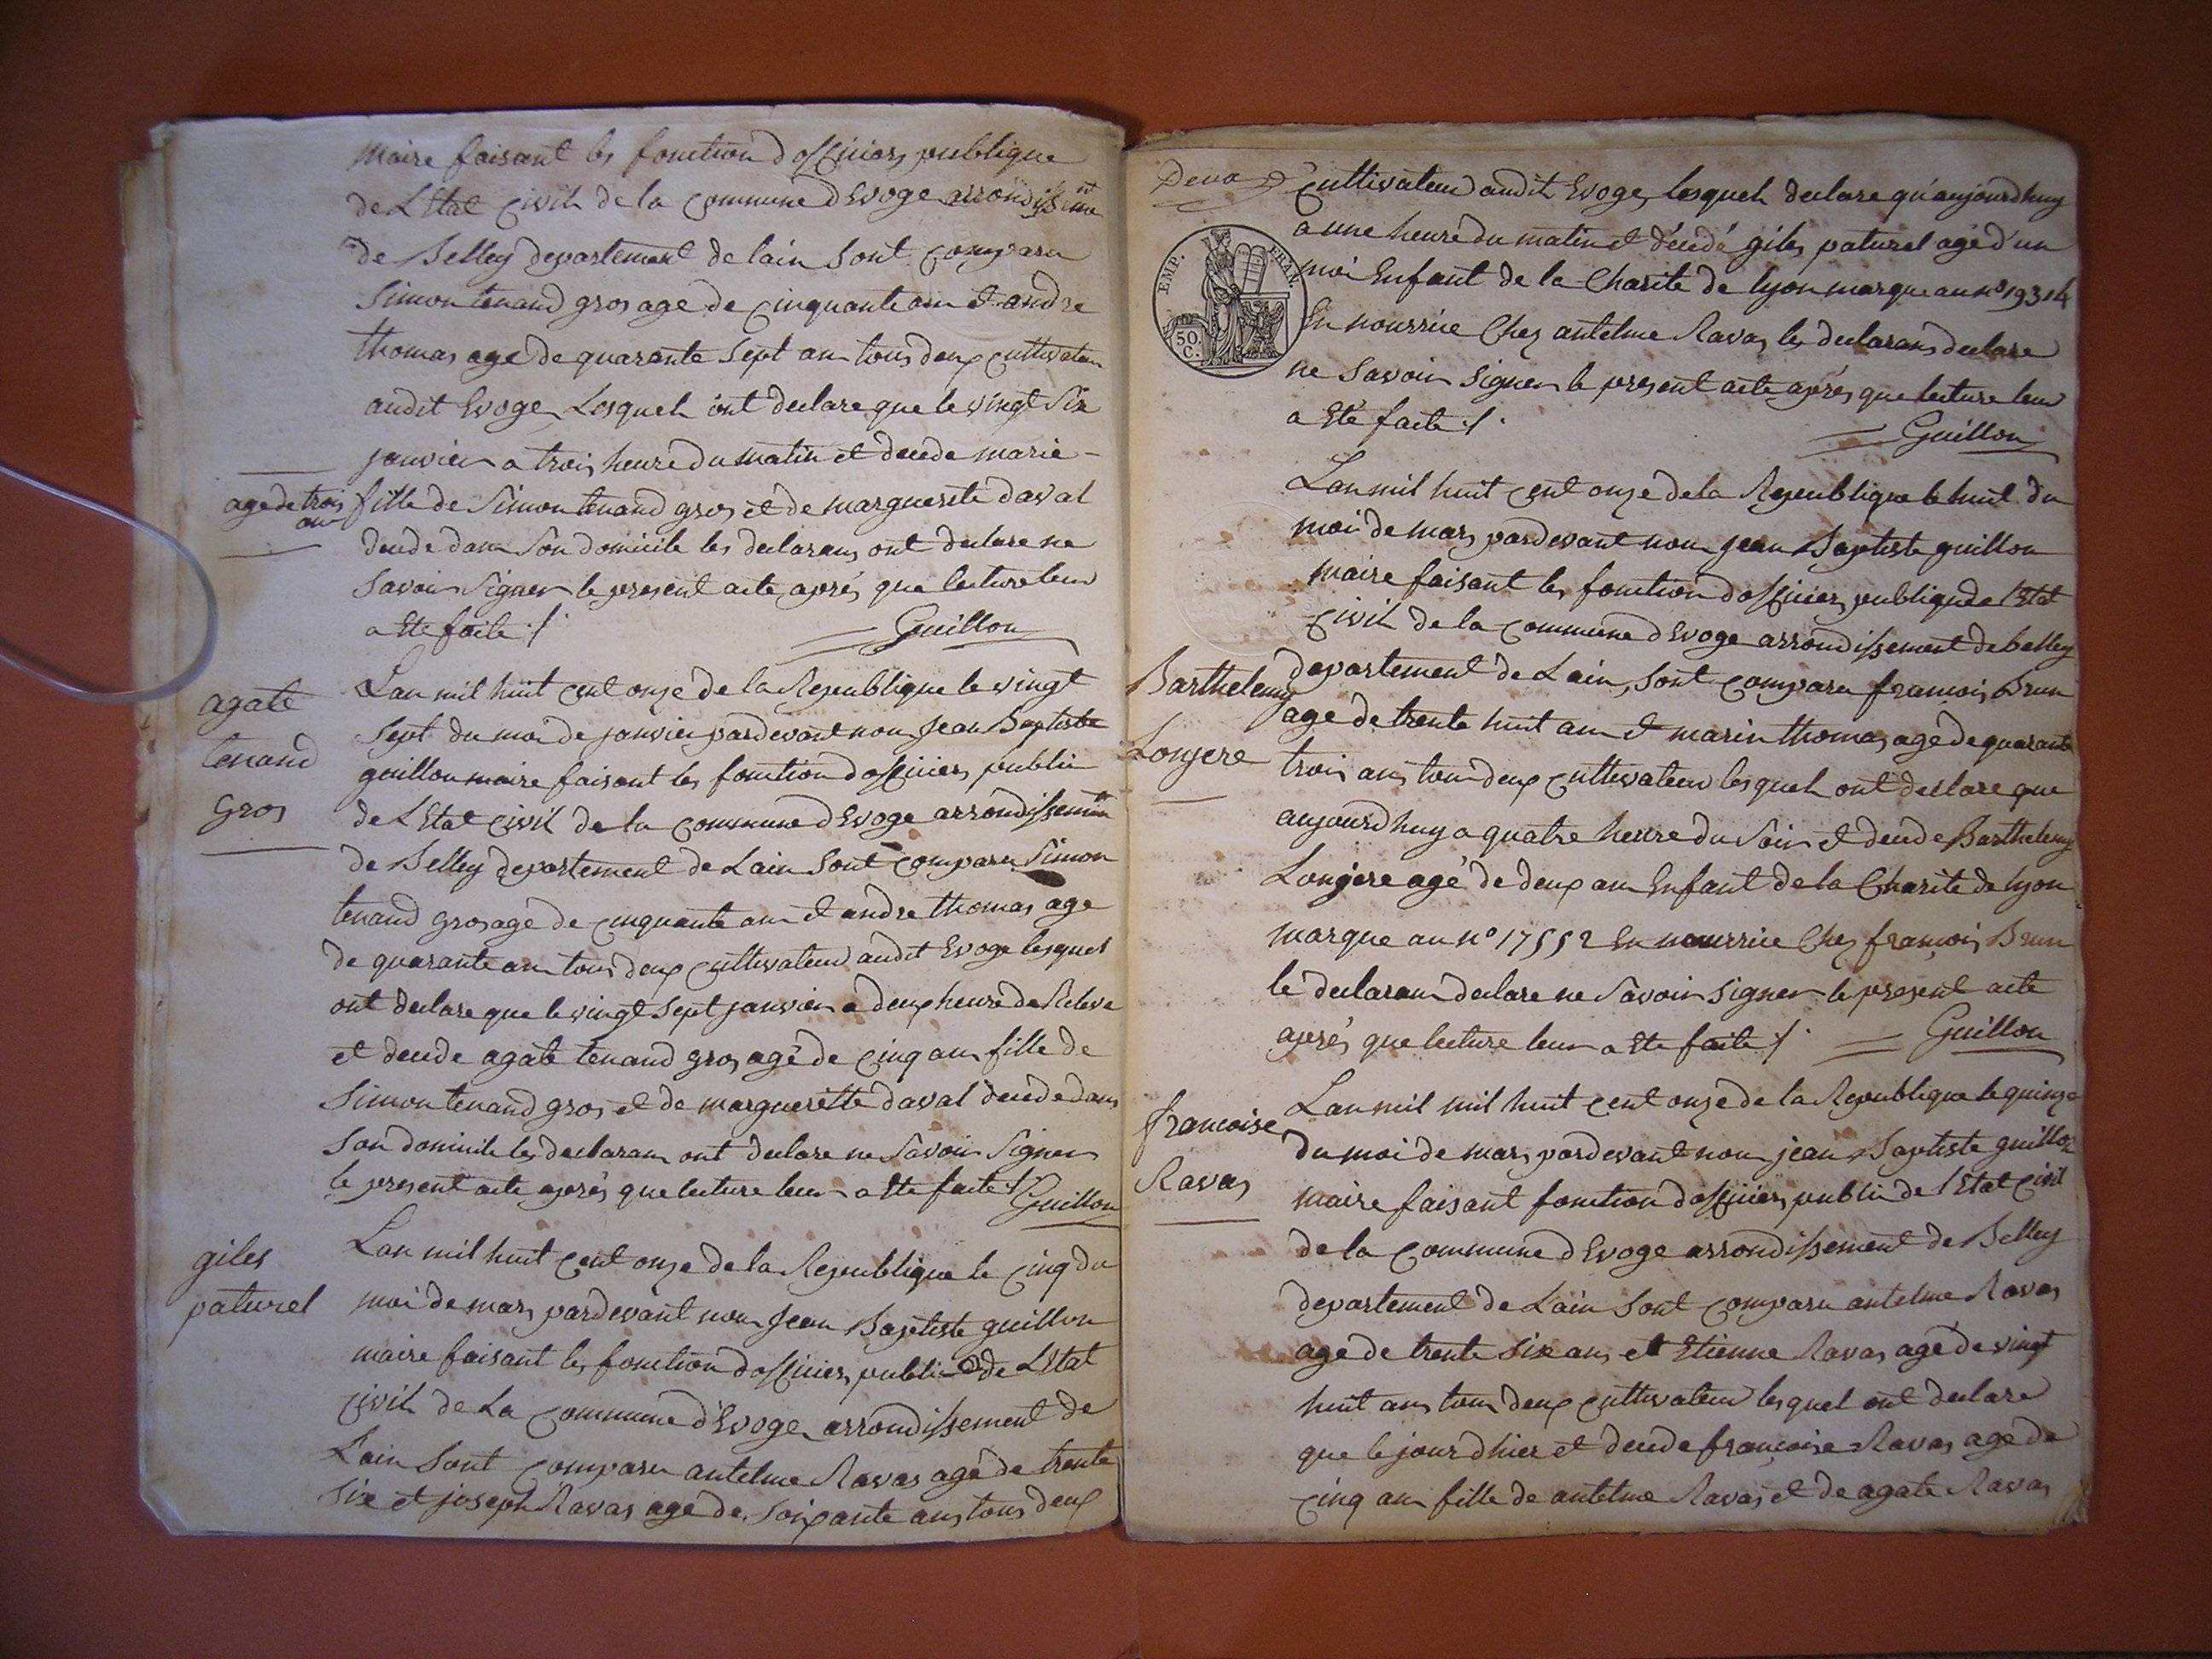 maire faisant les fonction d officiers publique
de L Etat Civil de la Commune d Evoge arrondissement
de Belley departement de lain Sont Comparu
Simon tenand gros age de Cinquante ans et andre
thomas age de quarante Sept ans tous deux Cultivateur
audit Evoge Lesquels ont declare que le vingt Six
janvier a trois heure du matin et decede marie
agede trois
ans
fille de Simon tenand gros et de marguerite daval
decede dans Son domicile les declarans ont declare ne
Savoir Signer le present acte après que lecture leur
a Ete faite /.
Guillon
agate
tenand
gros
Lan mil huit Cent onze de la Republique le vingt
Sept du moi de janvier pardevant nous Jean Baptiste
guillon maire faisant les fonction d officiers public
de L Etat Civil de la Commune d Evoge arrondissement
de Belley departement de Lain Sont Comparu Simon
tenand gros age de Cinquante ans et andre thomas age
de quarante ans tous deux Cultivateur audit Evoge lesquel
ont declare que le vingt Sept janvier a deux heure de Releve
et decede agate tenand gros agé de Cinq ans fille de
Simon tenand gros et de margueritte daval decede dans
Son domicile les declarans ont declare ne Savoir Signer
le present acte après que lecture leur a Ete faite /.
Guillon
giles
paturel
Lan mil huit Cent onze de la Republique le Cinq du
moi de mars pardevant nous Jean Baptiste guillon
maire faisant les fonction d officiers public de L Etat
Civil de La Commune d'Evoge arrondissement de
Lain Sont Comparu antelme Ravas agé de trente
Six et joseph Ravas age de Soixante ans tous deux
Cultivateur audit Evoge, lesquels declare qu'aujourdhuy
a une heure du matin et décédé giles paturel agé d'un
moi Enfant de la Charite de lyon marque au n° 19314
En nourrice Chez antelme Ravas les declarans declare
ne Savoir Signer le present acte après que lecture leur
a Eté faite /.
Guillon
EMP. FRAN.
50
C.
Lan mil huit Cent onze de la Republique le huit du
moi de mars pardevant nous jean Baptiste guillon
maire faisant les fonction d officiers publique de l Etat
Civil de la Commune d Evoge arrondissement de belley
Barthelemy
Lonjere
departement de Lain, Sont Comparu francois Brun
age de trente huit ans et marin thomas agé de quarante
trois ans tous deux Cultivateur lesquels ont declare que
aujourdhuy a quatre heure du Soir et decede Barthelemy
Lonjere agé de deux ans Enfant de la Charite de lyon
marque au n° 17552 En nourrice Chez francois Brun
lé declarans declare ne Savoir Signer le present acte
après que lecture leur a Ete faite /.
Guillon
francoise
Ravas
Lan mil mil huit Cent onze de la Republique le quinze
du moi de mars pardevant nous jean Baptiste guillon
maire faisant fonction d officiers public de l Etat Civil
de la Commune d Evoge arrondissement de Belley
departement de Lain Sont Comparu antelme Ravas
age de trente Six ans et Etienne Ravas agé de vingt
huit ans tous deux Cultivateur lesquel ont declare
que le jour d hier et decede françoise Ravas age de
Cinq ans fille de antelme Ravas et de agate Ravas